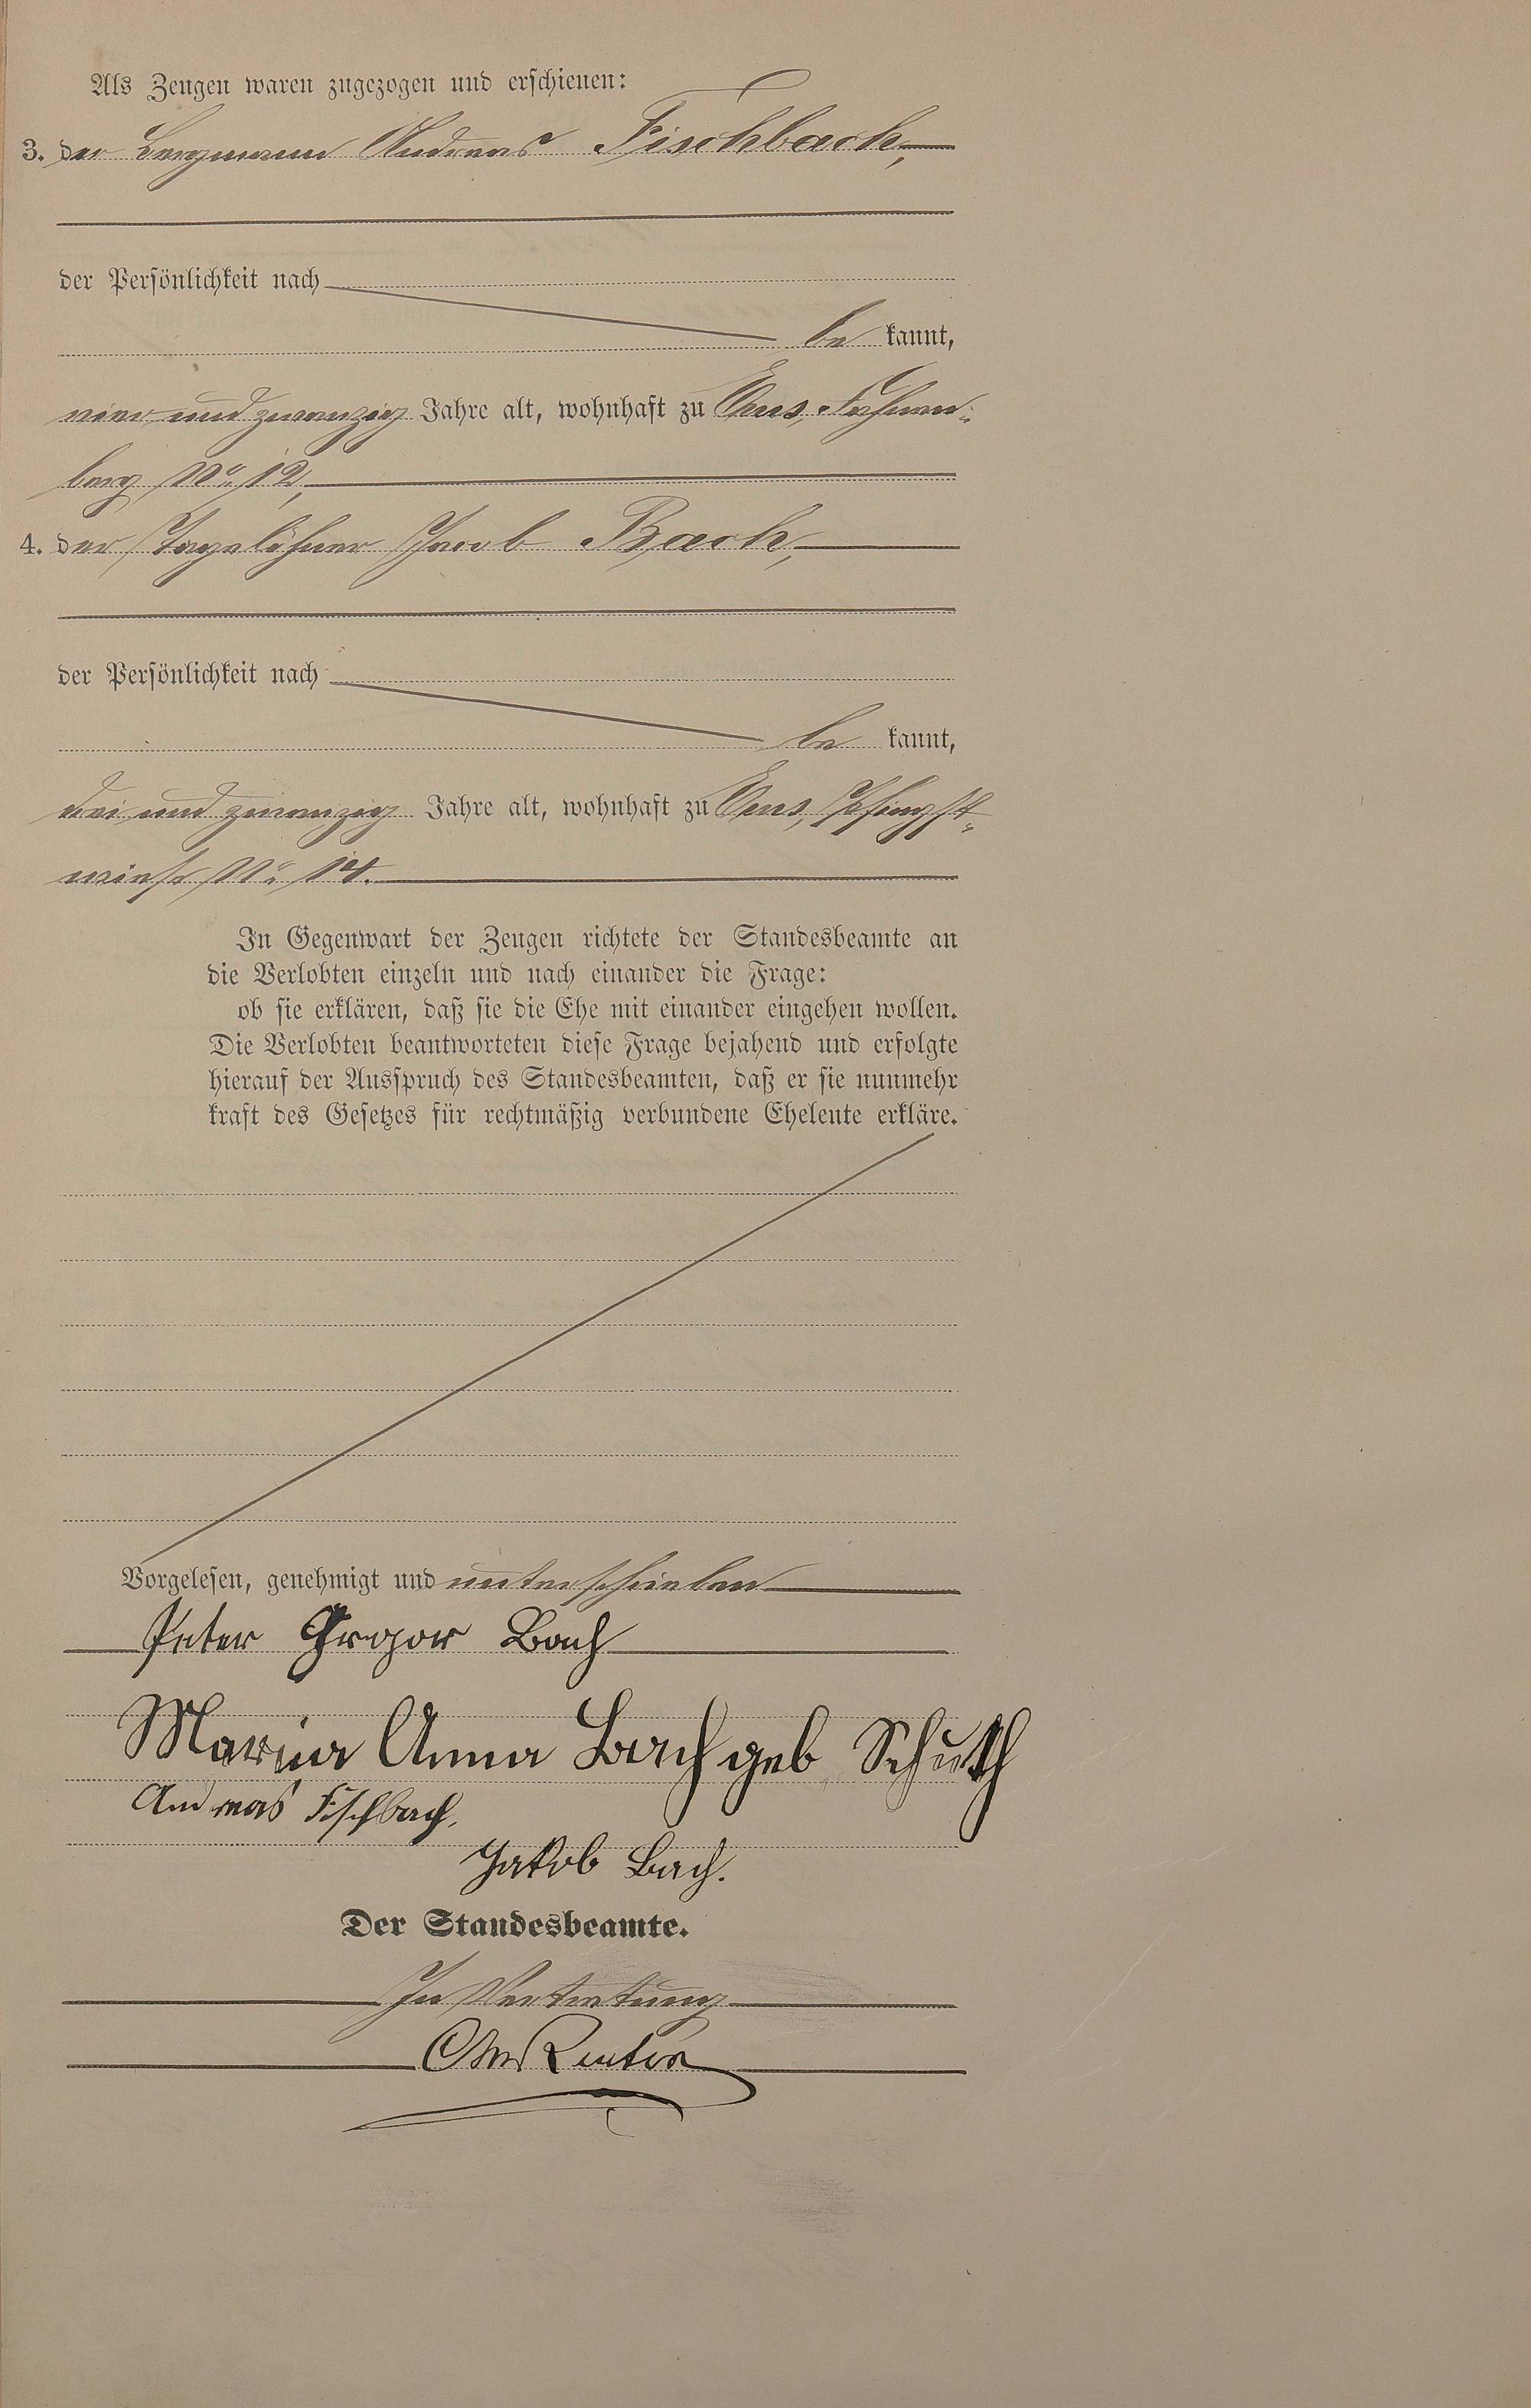 Als Zeugen waren zugezogen und erschienen:
3. der Bergmann Andreas Fischbach,
der Persönlichkeit nach
be kannt,
vier und zwanzig Jahre alt, wohnhaft zu Ems, Fahnen-
berg No. 12,
4. der Tagelöhner Jacob Bach,
der Persönlichkeit nach
be kannt,
drei und zwanzig Jahre alt, wohnhaft zu Ems, Pfingst-
wiese No. 14.
In Gegenwart der Zeugen richtete der Standesbeamte an
die Verlobten einzeln und nach einander die Frage:
ob sie erklären, daß sie die Ehe mit einander eingehen wollen.
Die Verlobten beantworteten diese Frage bejahend und erfolgte
hierauf der Ausspruch des Standesbeamten, daß er sie nunmehr
kraft des Gesetzes für rechtmäßig verbundene Eheleute erkläre.
Vorgelesen, genehmigt und unterschrieben
Peter Gregor Bach
Maria Anna Bach geb Schuth
Andreas Fischbach.
Jakob Bach.
Der Standesbeamte.
In Vertretung
Reuter